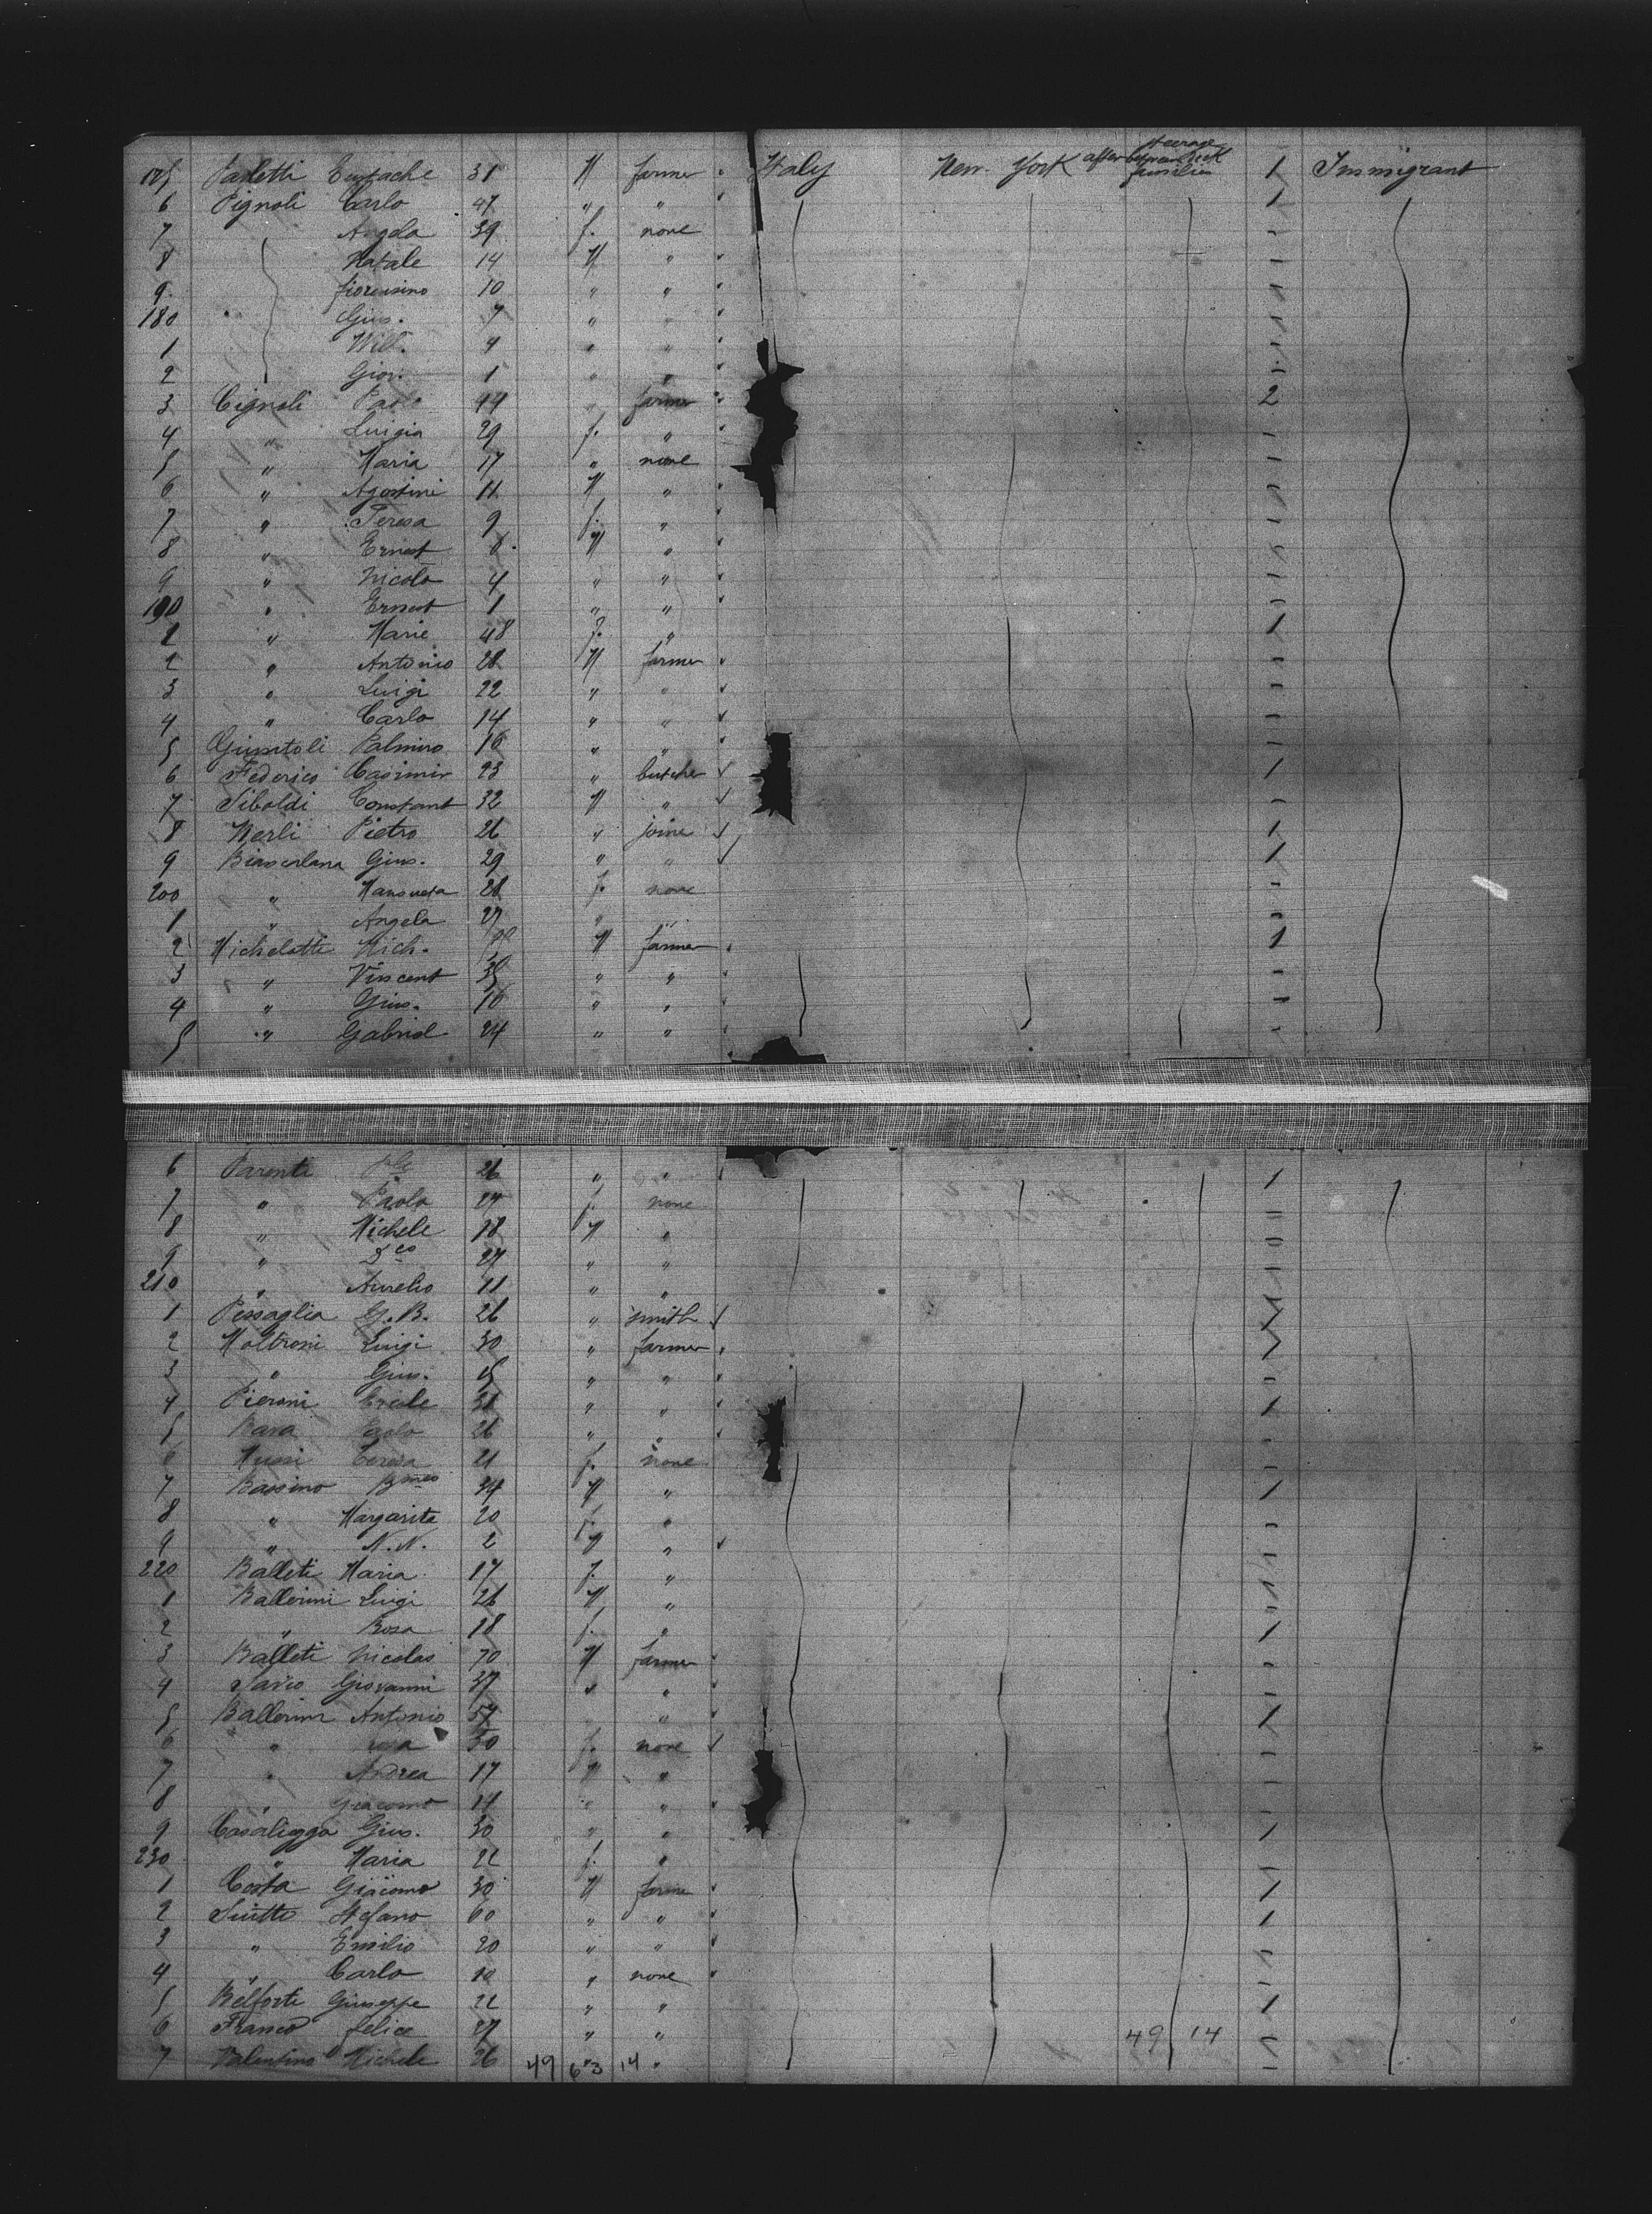 175 Paletti Eustache 31 M farmer Italy New-York after steerage between deck families 1 Immigrant
6 Pignoli Carlo 47 " " 1
7 Angela 39 f. none -
8 Natale 14 M " -
9 10 " " -
180 Gius. 7 " " -
1 Will. 4 " " -
2 Giov. 1 " " -
3 Cignoli 44 " farmer 2
4 " Luigia 29 f. " -
5 " Maria 17 " none -
6 " Agostini 11 M " -
7 " Teresa 9 f. " -
8 " Ernest 6 M " -
9 " Nicola 4 " " -
190 " Ernest 1 " " -
1 " Marie 48 f. " 1
2 " Antonio 28 M farmer -
3 " Luigi 22 " " -
4 " Carlo 14 " " -
5 Palmiro 16 " " -
6 Federico Casimir 23 " butcher 1
7 Siboldi Constant 32 M " -
8 Merli Pietro 26 " joine 1
9 Gius. 29 " " 1
200 " Mansueta 28 f. none -
1 " Angela 27 " " -
2 Michelotti Mich. M farmer 1
3 " Vincent 35 " " -
4 " Gius. 16 " " -
5 " Gabriel 24 " " -
6 Parenti 26 " " 1
7 " Paolo 27 f. none -
8 " Michele 18 M " -
9 " Dco 27 " " -
210 " Aurelio 11 " " -
1 Pessaglia G.B. 26 " smith 1
2 Moltroni Luigi 30 " farmer 1
3 " Gius. 15 " " -
4 Pieroni Ercile 31 " " 1
5 Bara Paolo 26 " " -
6 Mussi Teresa 21 f. none -
7 Bassino Bmeo 34 M " 1
8 " Margarita 20 f. " -
9 " N.N. 2 M " -
220 Balleti Maria 17 f. " -
1 Ballerini Luigi 26 M " -
2 " Rosa 18 f. " 1
3 Balleti Nicolas 70 M farmer -
4 Giovanni 37 " " -
5 Ballerini Antonio 57 " " 1
6 " 50 f. none -
7 " Andrea 17 M " -
8 " Giacomo 14 " " -
9 Casaliggo Gius. 30 " " 1
230 " Maria 22 f. " -
1 Costa Giacomo 30 M farme 1
2 Stefano 60 " " 1
3 " Emilio 20 " " -
4 " Carlo 10 " none -
5 Belforti Giuseppe 22 " " 1
6 Franco felice 27 " " 49 14 -
7 Valentino Michele 26 49 63 14 " -